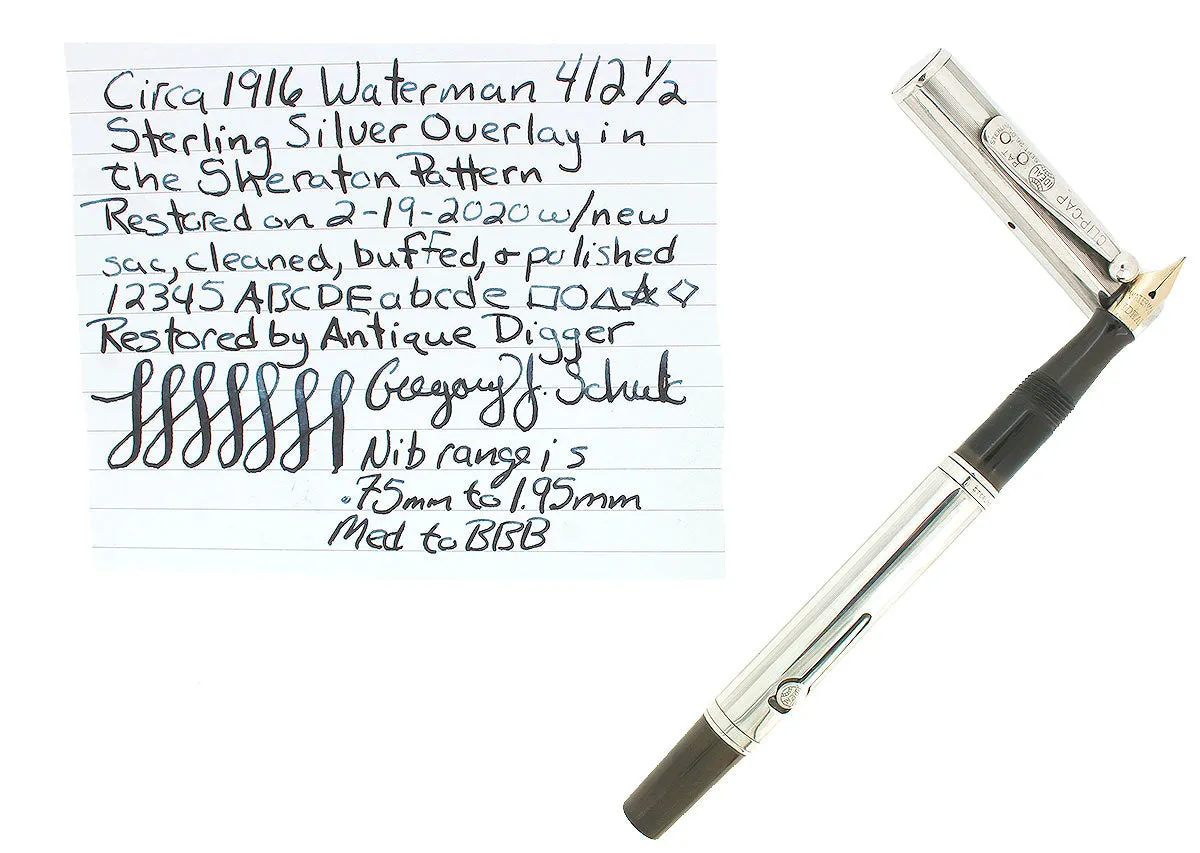 Circa 1916 Waterman 412 1/2
Sterling Silver Overlay in
the Sheraton Pattern
Restored on 2-19-2020 w/new
sac, cleaned, buffed, & polished
12345 ABCDE abcde
Restored by Antique Digger
Gregory J.
Nib range is
.75mm to 1.95mm
Med to BBB
CLIP-CAP
IDEAL
PAT